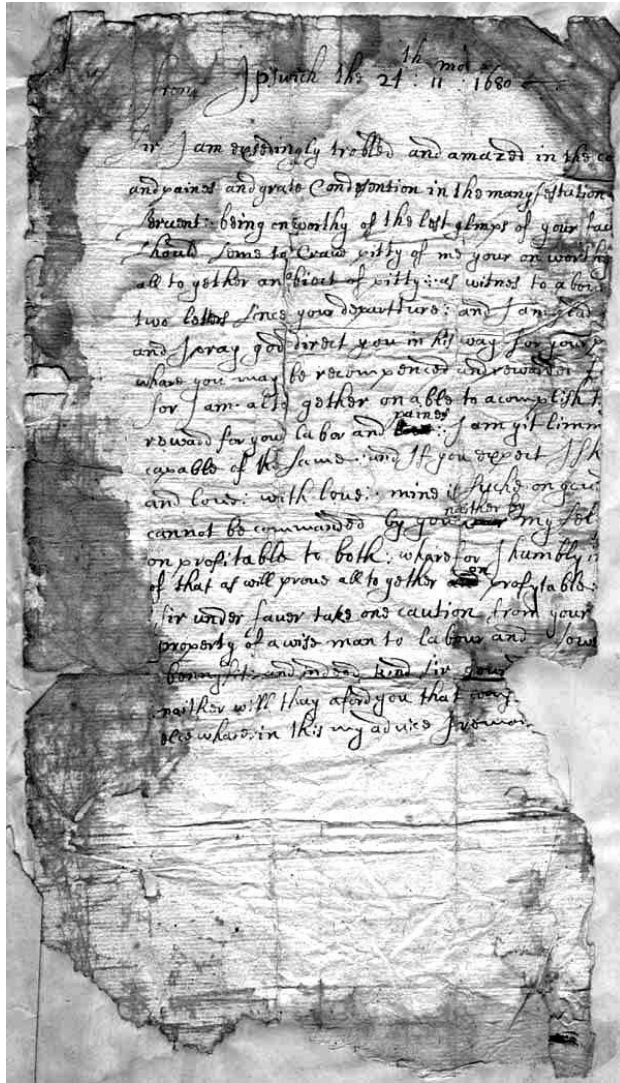 from Ipswich the 21th : 11 : mo 1680
Sir I am exsedingly trobled and amazed in the
and paines and grate Condesention in the manyfestation
servent : being onworthy of the lest glimps of your fau
should seme to Craue pitty of me your onworthy
all to gether an obiect of pitty : as witnes
two letters since your departture : and I am glad
and I pray god direct you in his way for your
whare you may be recompenced and rewarded
for I am alto gether on able to acomplish
reward for your labor and paines : I am yit
capable of the same : and If you expect I
and loue : with loue : mine is suche
cannot be commanded by you naither by my sel
on profitable to both : wharefor I humbly
of that as will proue all to gether on profytable :
sir under fauer take one caution from your
property of a wise man to labour and
and kind sir your
naither will thay aford you that
elce whare : in this my advice I